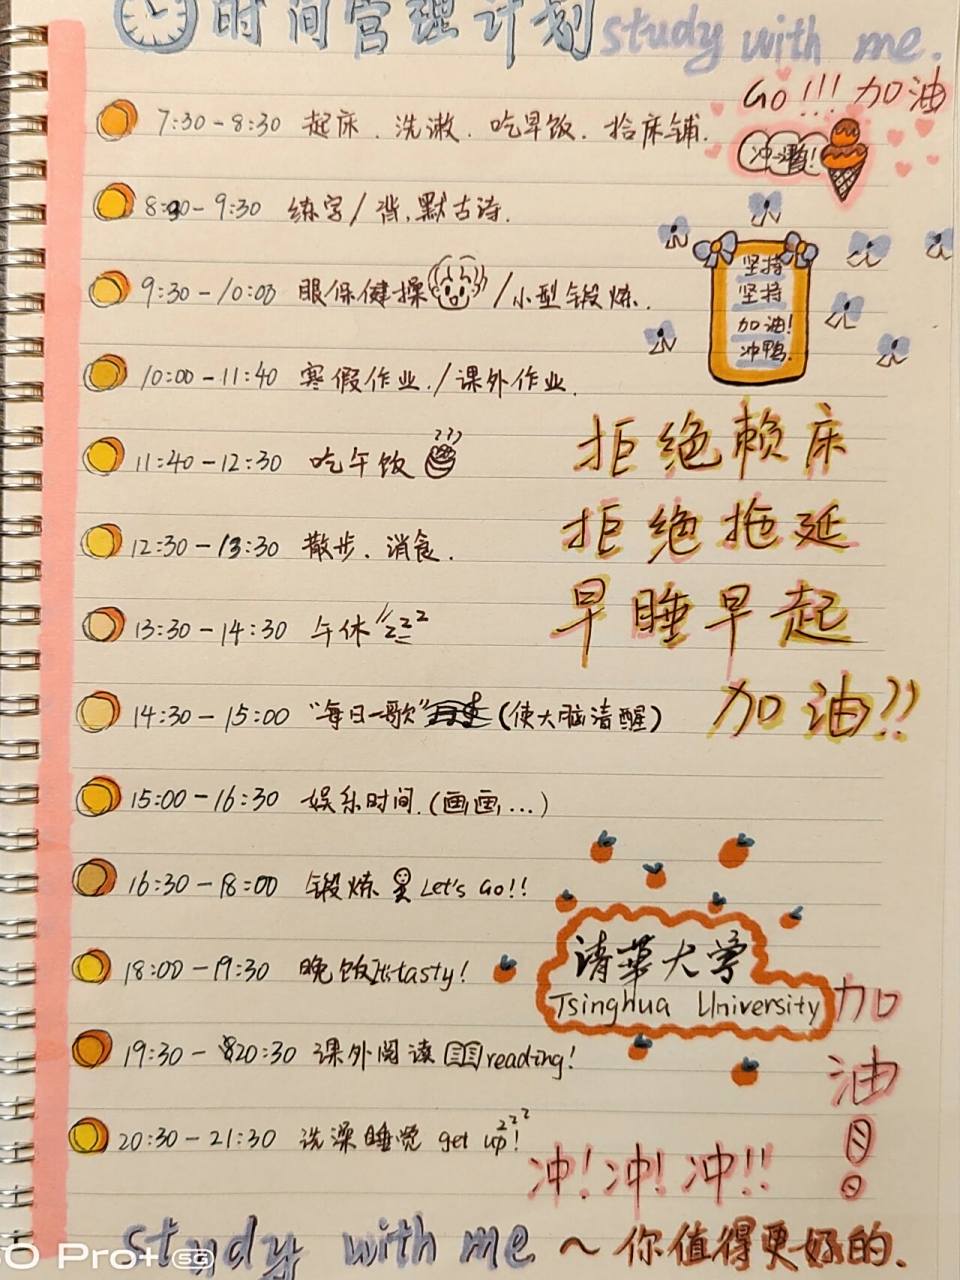 时间管理计划 study with me.
Go!!! 加油
7:30-8:30 起床、洗漱、吃早饭、拾床铺.
8:30-9:30 练字/背,默古诗.
坚持
坚持
加油!
冲鸭.
9:30-10:00 眼保健操/小型锻炼.
10:00-11:40 寒假作业./课外作业.
11:40-12:30 吃午饭
拒绝赖床
拒绝拖延
早睡早起
加油!!
12:30-13:30 散步、消食.
13:30-14:30 午休 zzz
14:30-15:00 "每日一歌"(使大脑清醒)
15:00-16:30 娱乐时间.(画画...)
16:30-18:00 锻炼 Let's Go!!
18:00-19:30 晚饭It's tasty!
清華大学
Tsinghua University
加
油
19:30-20:30 课外阅读 reading!
20:30-21:30 洗澡睡觉 get up! zzz
冲!冲!冲!!
study with me ~ 你值得更好的.
O Pro+ 5G